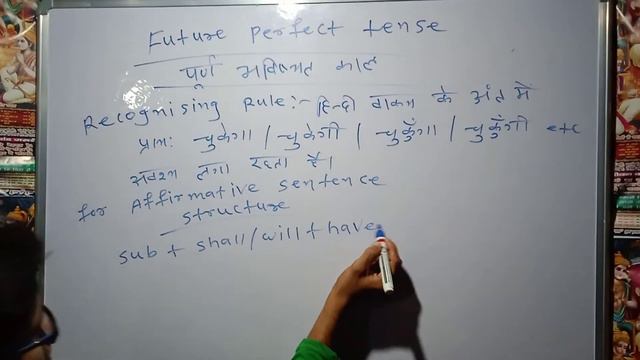 Future perfect tense
पूर्ण भविष्यत काल
Recognising Rule:- हिन्दी वाक्य के अंत में
प्रायः चुकेगा / चुकेगी / चुकूँगा / चुकूँगी etc
अवश्य लगा रहता है।
for Affirmative sentence
structure
sub + shall/will + have